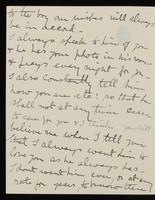 to the boy our wishes will always
be in accord -
I always speak to him of you
& he has your photo in his room
& prays every night for you -
I also constantly tell him
how you are etc; so that he
shall not at any time cease
to care for you & I think you will
believe me when I tell you
that I always want him to
love you as he always has -
I don't want him ever, or at any
rate for years to know there